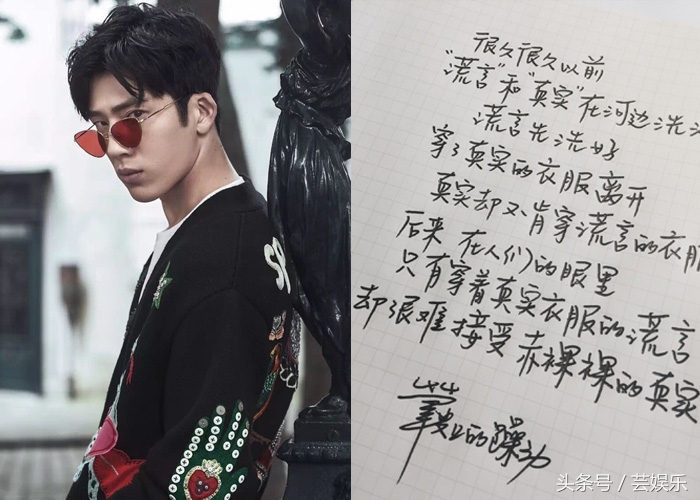 很久很久以前
"谎言"和"真实"在河边洗
谎言先洗好
穿了真实的衣服离开
真实却不肯穿谎言的衣服
后来 在人们的眼里
只有穿着真实衣服的谎言
却很难接受赤裸裸的真实
的躁动
头条号 / 芸娱乐